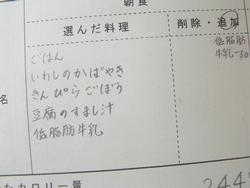 朝食
選んだ料理
削除・追加
ごはん
いわしのかばやき
きんぴらごぼう
豆腐のすまし汁
低脂肪牛乳
低脂肪
牛乳-30
名
カロリー量
244